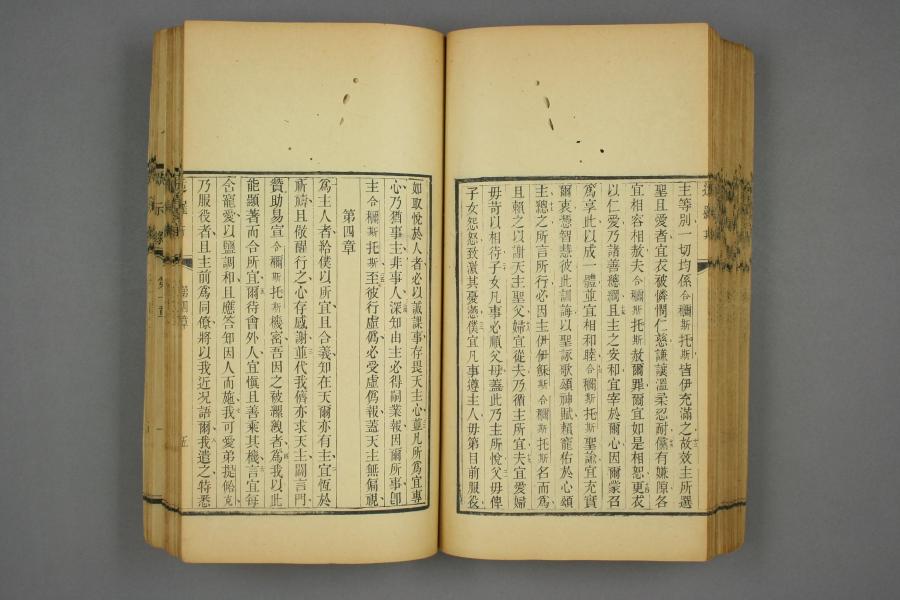 主等別一切均係合穪斯托斯皆伊充滿之故效主所選
聖且愛者宜衣破憐憫仁慈謙讓溫柔忍耐儻有嫌隙各
宜相容相赦夫合穪斯托斯赦爾罪爾宜如是相恕更衣
以仁愛乃諸善總綱且主之安和宜宰於爾心因爾蒙召
爲享此以成一體並宜相和睦合穪斯托斯聖諭宜充實
爾衷懸智慧彼此訓誨以聖詠歌頌神賦賴寵佑於心頌
主總之所言所行必因主伊伊穌斯合穪斯托斯名而爲
且賴之以謝天主聖父婦宜從夫乃循主所宜夫宜愛婦
毋苛以相待子女凡事必順父母蓋此乃主所悅父毋俾
子女怨怒致激其憂愁僕宜凡事遵主人毋第目前服役
如取悅於人者必以誠謀事存畏天主心並凡所爲宜專
心乃猶事主非事人深知由主必得嗣業報因爾所事卽
主合穪斯托斯至彼行虛僞必受虛僞報蓋天主無偏視
第四章
爲主人者給僕以所宜且合義知在天爾亦有主宜恆於
祈禱且儆醒行之心存感謝並代我儕亦求天主闢言門
贊助易宣合穪斯托斯機密吾因之被縲絏者爲我以此
能顯著而合所宜爾待會外人宜愼且善乘其機言宜每
含寵愛以鹽調和且應答知因人而施我可愛弟提倫克
乃服役者且主前爲同僚將以我近況語爾我遣之特悉
第四章
五